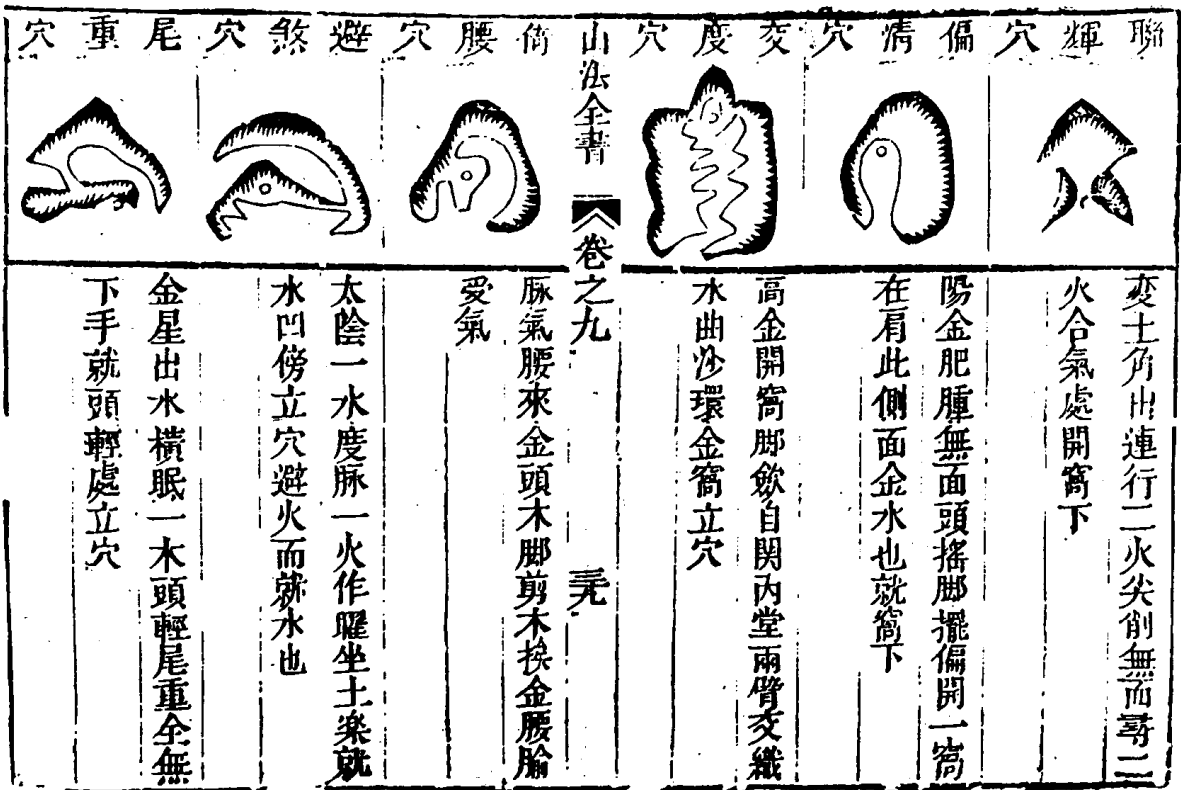 聯輝穴
変土角出連行二火尖削無而尋二
火合氣處開窩下
偏情穴
陽金肥腫無面頭搖脚擺偏開一窩
在肩此側面金水也就窩下
交度穴
高金開窩脚歛自関內堂兩臂交織
水曲沙環金窩立穴
山法全書
卷之九
三九
腰穴
脉氣腰來金頭木脚剪木挨金腰腧
受氣
避煞穴
太陰一水度脉一火作曜坐土楽就
水凹傍立穴避火而就水也
尾重穴
金星出水橫眠一木頭輕尾重全無
下手就頭輕處立穴